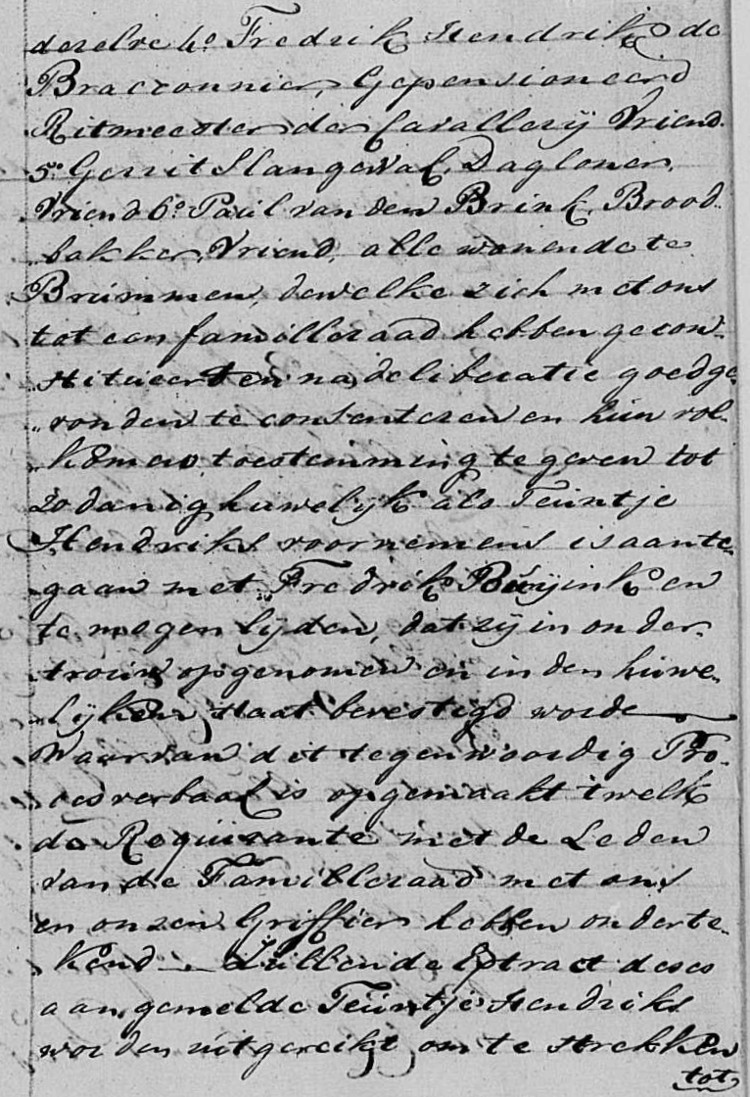 dezelve 4o Fredrik Hendrik de
Braconnier, Gepensioneerd
Ritmeester der Cavallerij Vriend
5o Gerrit Slangewal, Dagloner,
Vriend 6o Paul van den Brink, Brood„
„bakker, Vriend, alle wonende te
Brummen, dewelke zich met ons
tot een familleraad hebben gecon„
„stitueert en na deliberatie goedge„
„vonden te consenteren en hun vol„
„komen toestemming te geven tot
zodanig huwelijk als Teuntje
Hendriks voornemens is aante„
„gaan met Fredrik Buijink en
te mogen lijden, dat zij in onder„
„trouw opgenomen en in den huwe„
„lijken staat bevestigd worde
Waarvan dit tegenwoordig Pro„
„cesverbaal is opgemaakt 'twelk
de Requirante met de Leden
van de Familleraad met ons
en onzen Griffier hebben onderte„
„kend Zullende Extract dezes
aan gemelde Teuntje Hendriks
worden uitgereikt om te strekken
tot